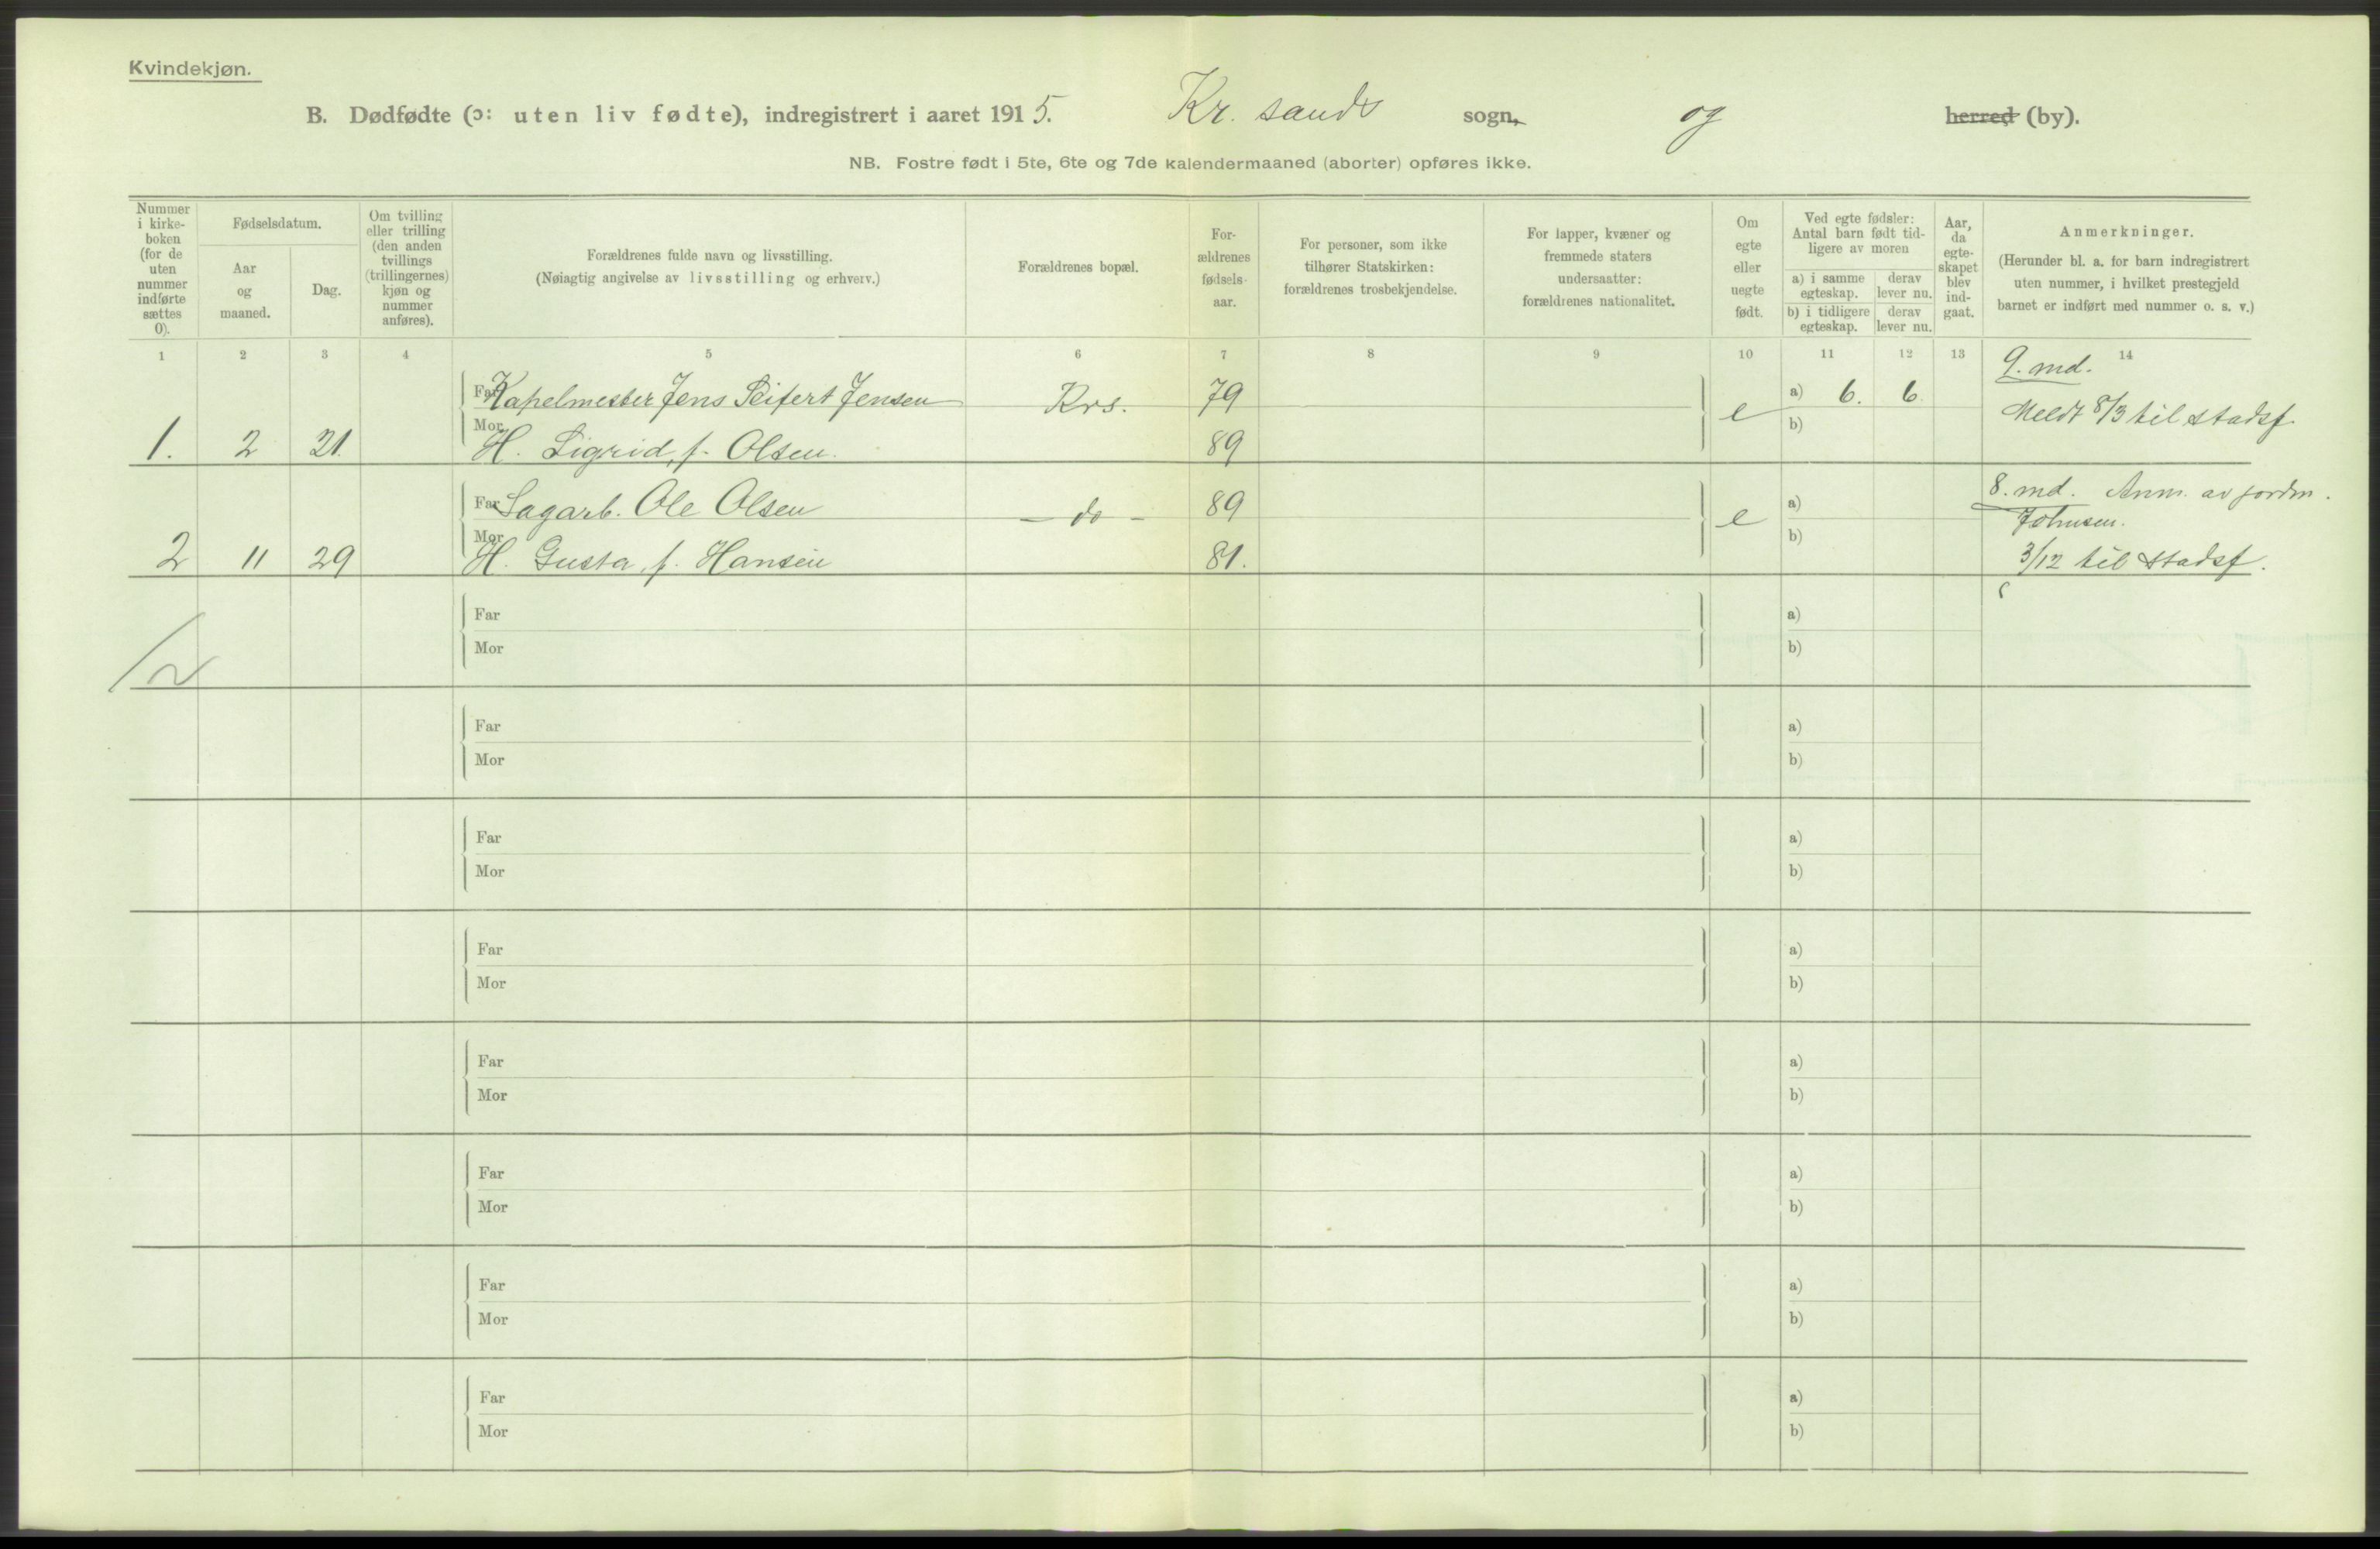 Kvindekjøn.
B. Dødfødte (ɔ: uten liv fødte), indregistrert i aaret 1915. Kr. sands sogn, og herred (by).
NB. Fostre født i 5te, 6te og 7de kalendermaaned (aborter) opføres ikke.
Nummer
i kirke-
boken
(for de
uten
nummer
indførte
sættes
0).
Fødselsdatum.
Aar
og
maaned.
Dag.
Om tvilling
eller trilling
(den anden
tvillings
(trillingernes)
kjøn og
nummer
anføres).
Forældrenes fulde navn og livsstilling.
(Nøiagtig angivelse av livsstilling og erhverv.)
Forældrenes bopæl.
For-
ældrenes
fødsels-
aar.
For personer, som ikke
tilhører Statskirken:
forældrenes trosbekjendelse.
For lapper, kvæner og
fremmede staters
undersaatter:
forældrenes nationalitet.
Om
egte
eller
uegte
født.
Ved egte fødsler:
Antal barn født tid-
ligere av moren
a) i samme
egteskap.
derav
lever nu.
b) i tidligere
egteskap.
derav
lever nu.
Aar,
da
egte-
skapet
blev
ind-
gaat.
Anmerkninger.
(Herunder bl. a. for barn indregistrert
uten nummer, i hvilket prestegjeld
barnet er indført med nummer o. s. v.)
1 2 3 4 5 6 7 8 9 10 11 12 13 14
9. md.
Far Kapelmester Jens Seifert Jensen Krs. 79 e a) 6. 6. Meldt 8/3 til stadsf.
1. 2 21. Mor H. Sigrid, f. Olsen. 89 b)
8. md. Anm. av jordm.
Far Sagarb. Ole Olsen - do - 89 e a) Johnsen.
2 11 29 Mor H. Gusta, f. Hansen 81. b) 3/12 til stadsf.
Far a)
Mor b)
Far a)
Mor b)
Far a)
Mor b)
Far a)
Mor b)
Far a)
Mor b)
Far a)
Mor b)
Far a)
Mor b)
Far a)
Mor b)